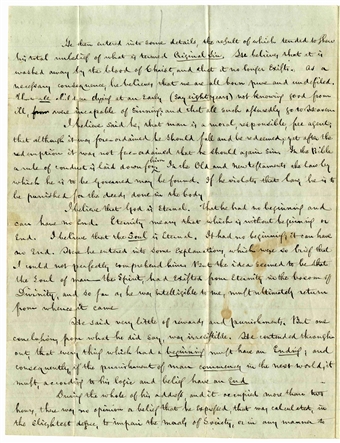 He then entered into some details, the result of which tended to show
his total unbelief of what is termed Original Sin. He believes that it is
washed away by the blood of Christ, and that it no longer exists. As a
necessary consequence, he believes that we are all born pure and undefiled.
That all children dying at an early (say eight years) not knowing good from
ill, were incapable of sinning and that all such assuredly go to Heaven
I believe said he, that man is a moral, responsible, free agent;
that although it was foreordained he should fall and be redeemed, yet after the
redemption it was not foreordained that he should again sin. In the Bible
a rule of conduct is laid down for him. In the Old and New testaments the law by
which he is to be governed may be found. If he violates that law, he is to
be punished for the deeds done in the body.
I believe that God is Eternal. That he had no beginning and
can have no End. Eternity means that which is without beginning or
End. I believe that the Soul is Eternal. It had no beginning; it can have
no End. Here he entered into some explanations which were so brief that
I could not perfectly comprehend him. But the idea seemed to be that
the Soul of man the Spirit, had existed from Eternity in the bosom of
Divinity, and so far as he was intelligible to me, must ultimately return
from whence it came.
He said very little of rewards and punishments. But one
conclusion, from what he did say, was irresistible. He contended through
out, that every thing which had a beginning must have an Ending; and
consequently if the punishment of man commenced in the next world, it
must, according to his logic and belief have an End.
During the whole of his address, and it occupied more than two
hours, there was no opinion or belief that he expressed that was calculated, in
the slightest degree, to impair the morals of Society, or in any manner to